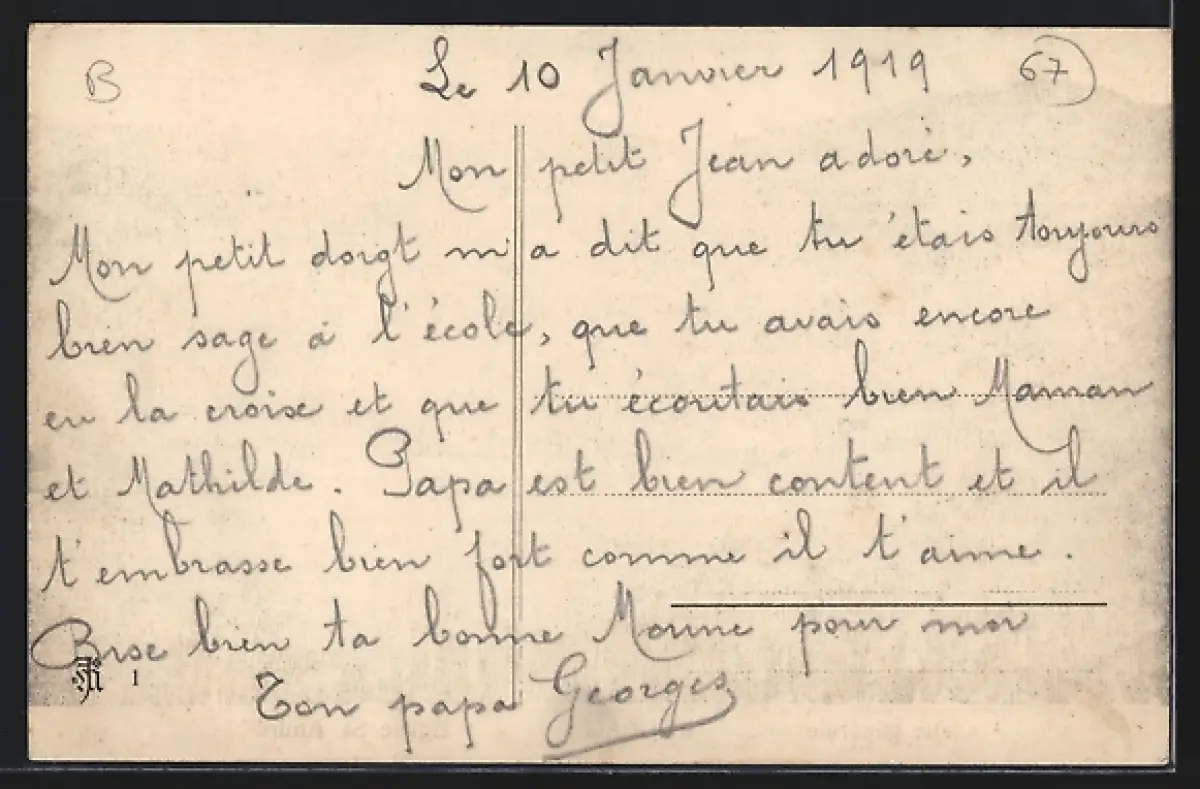 B
Le 10 Janvier 1919
67
Mon petit Jean adoré,
Mon petit doigt m'a dit que tu étais toujours
bien sage à l'école, que tu avais encore
eu la croix et que tu écoutais bien Maman
et Mathilde. Papa est bien content et il
t'embrasse bien fort comme il t'aime.
Bise bien ta bonne Moune pour moi
1
Ton papa Georges